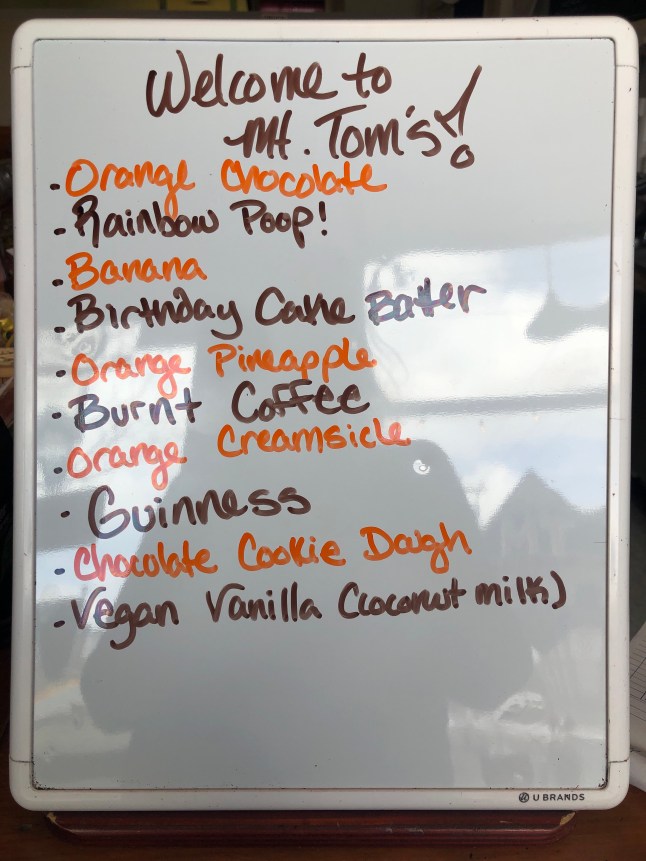 Welcome to
Mt. Tom's!
• Orange Chocolate
• Rainbow Poop!
• Banana
• Birthday Cake Batter
• Orange Pineapple
• Burnt Coffee
• Orange Creamsicle
• Guinness
• Chocolate Cookie Dough
• Vegan Vanilla (coconut milk)
U BRANDS